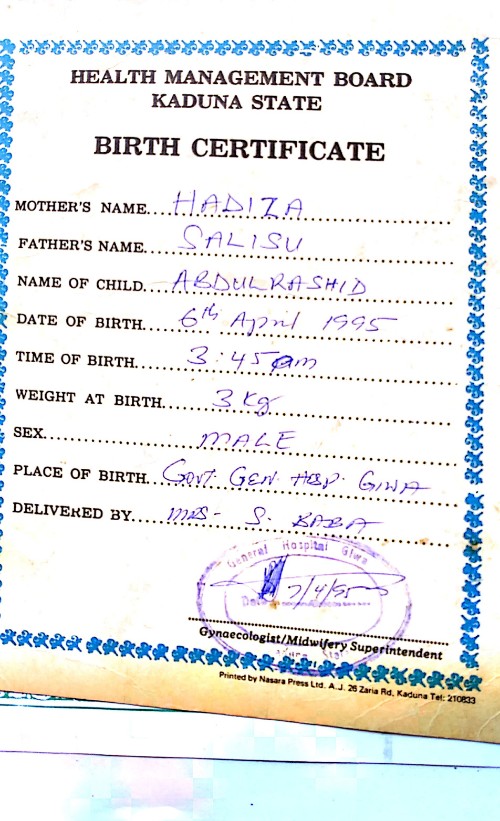 HEALTH MANAGEMENT BOARD
KADUNA STATE
BIRTH CERTIFICATE
MOTHER'S NAME...HADIZA
FATHER'S NAME...SALISU
NAME OF CHILD...ABDULRASHID
DATE OF BIRTH...6th April 1995
TIME OF BIRTH...3:45am
WEIGHT AT BIRTH...3kg
SEX...MALE
PLACE OF BIRTH...GOVT. GEN. HOSP. GIWA
DELIVERED BY...MRS- S. BABA
General Hospital Giwa
7/4/95
Gynaecologist/Midwifery Superintendent
Printed by Nasara Press Ltd. A.J. 26 Zaria Rd, Kaduna Tel: 210833